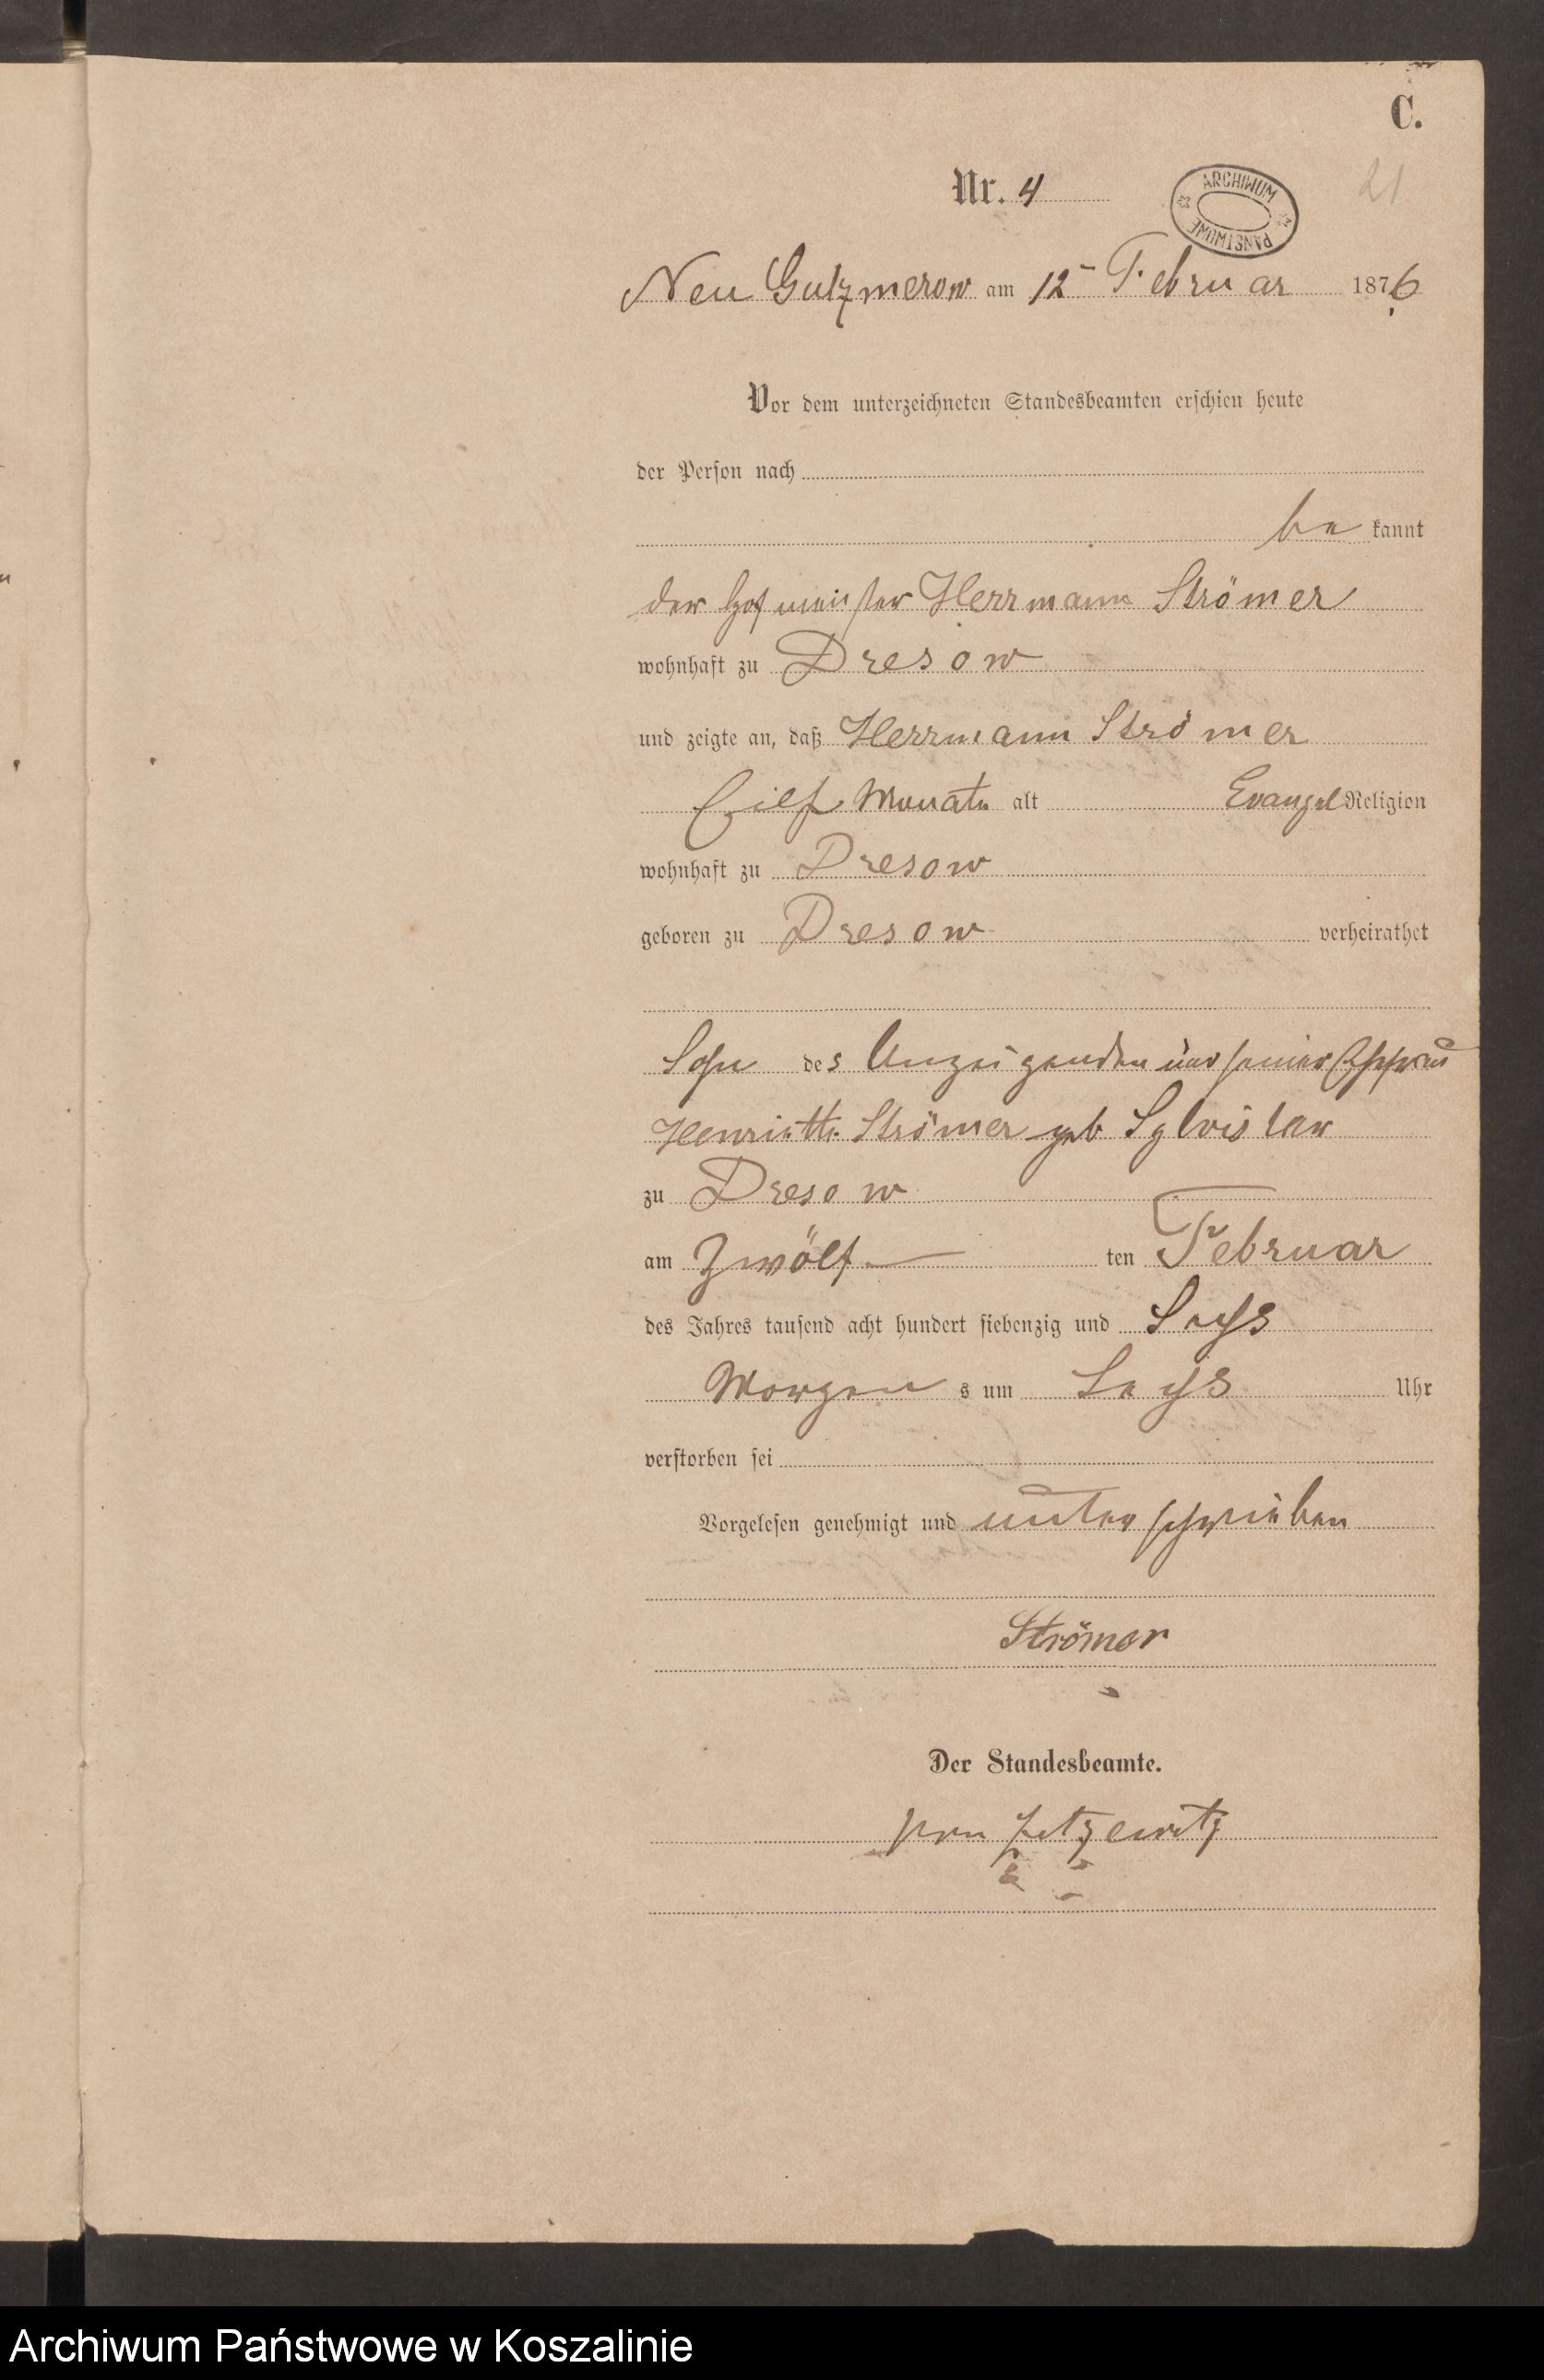 C.
Nr. 4
21
ARCHIWUM PAŃSTWOWE
Neu Gutzmerow am 12 Februar 1876
Vor dem unterzeichneten Standesbeamten erschien heute
der Person nach
be kannt
der Hofmeister Herrmann Strömer
wohnhaft zu Dresow
und zeigte an, daß Herrmann Strömer
Eilf Monate alt Evangel Religion
wohnhaft zu Dresow
geboren zu Dresow verheirathet
Sohn des Anzeigenden und seiner Ehefrau
Henriette Strömer geb
zu Dresow
am Zwölf ten Februar
des Jahres tausend acht hundert siebenzig und Sechs
Morgen s um Sechs Uhr
verstorben sei
Vorgelesen genehmigt und unterschrieben
Strömer
Der Standesbeamte.
von Zitzewitz
Archiwum Państwowe w Koszalinie